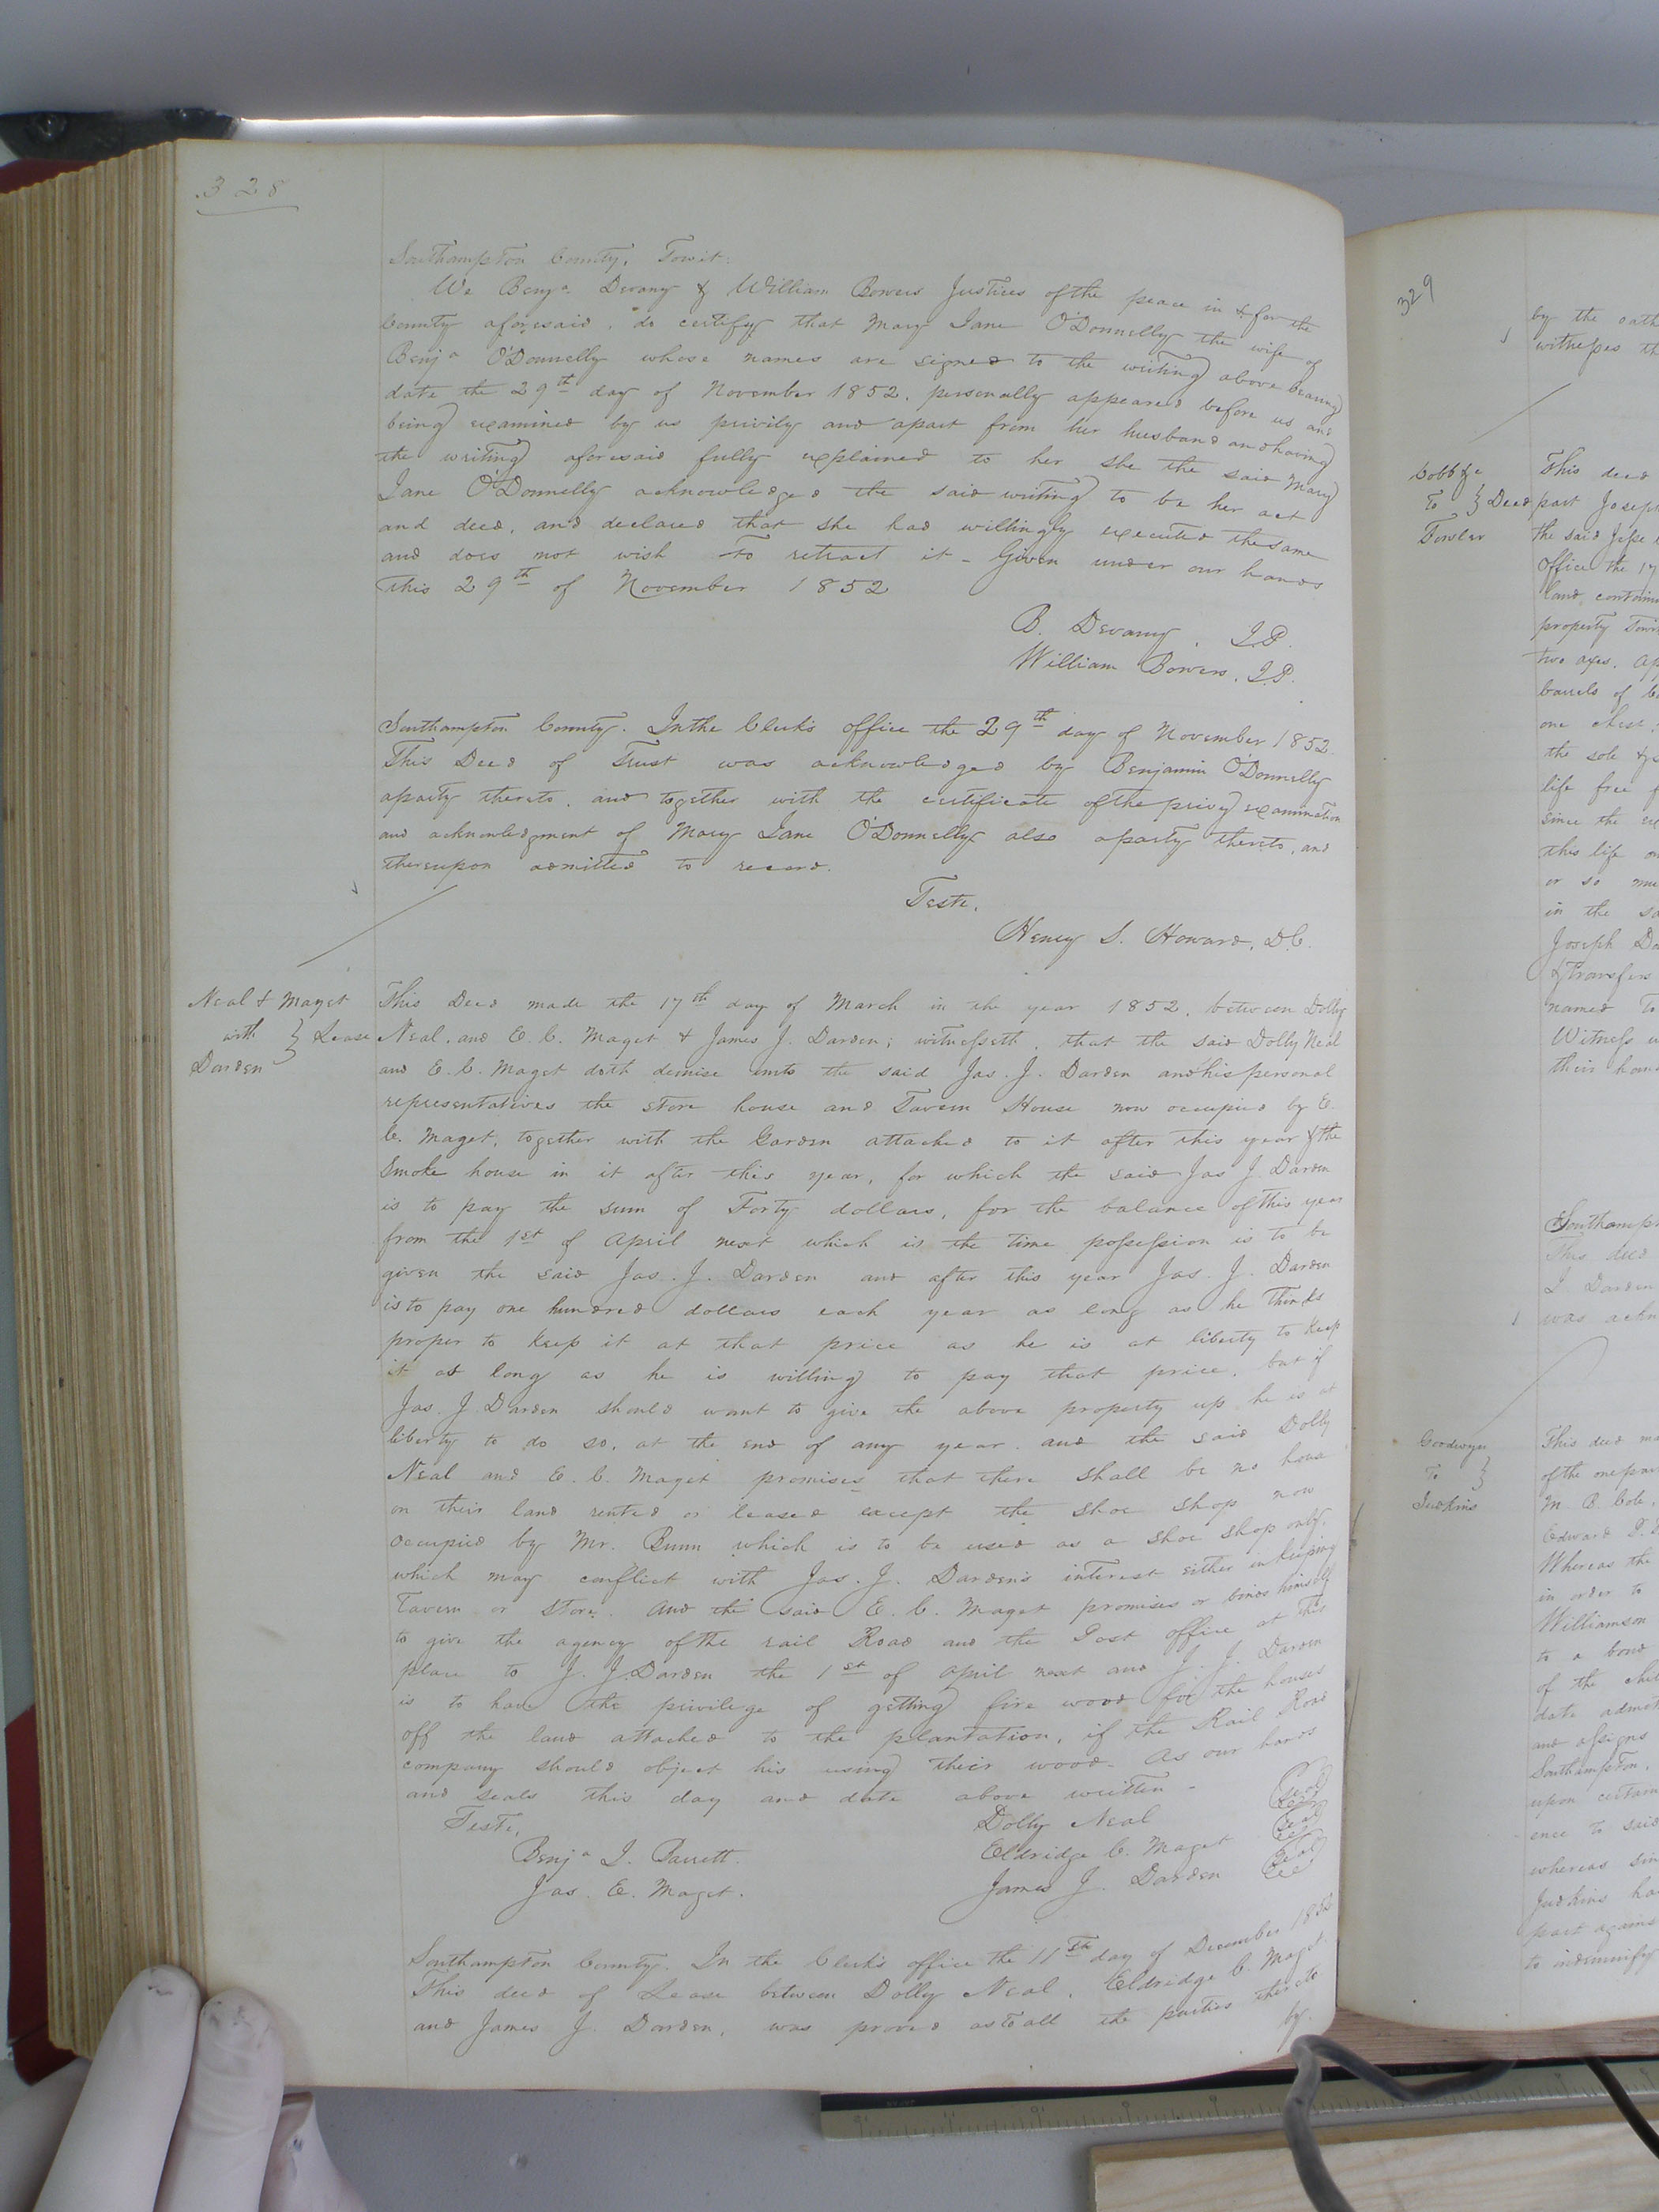 328
Southampton County, Towit:
We Benja. Devany & William Bowers Justices of the peace in & for the
County aforesaid, do certify that Mary Jane O'Donnelly the wife of
Benja O'Donnelly whose names are signed to the writing above bearing
date the 29th day of November 1852, personally appeared before us and
being examined by us privily and apart from her husband and having
the writing aforesaid fully explained to her she the said Mary
Jane O'Donnelly acknowledged the said writing to be her act
and deed, and declared that she had willingly executed the same
and does not wish to retract it - Given under our hands
this 29th of November 1852
B. Devany, J.P.
William Bowers, J.P.
Southampton County. In the Clerk's office the 29th day of November 1852
This Deed of Trust was acknowledged by Benjamin O'Donnelly
a party thereto, and together with the certificate of the privy examination
and acknowledgment of Mary Jane O'Donnelly also a party thereto, and
thereupon admitted to record.
Teste,
Henry S. Howard, D.C.
Neal & Maget
with } Lease
Darden
This Deed made the 17th day of March in the year 1852, between Dolly
Neal, and E. C. Maget & James J. Darden; witnesseth, that the said Dolly Neal
and E. C. Maget doth demise unto the said Jas. J. Darden and his personal
representatives the store house and Tavern House now occupied by E.
C. Maget, together with the Garden attached to it after this year & the
Smoke house in it after this year, for which the said Jas J. Darden
is to pay the sum of Forty dollars, for the balance of this year
from the 1st of April next which is the time possession is to be
given the said Jas. J. Darden and after this year Jas. J. Darden
is to pay one hundred dollars each year as long as he thinks
proper to keep it at that price as he is at liberty to keep
it as long as he is willing to pay that price, but if
Jas. J. Darden should want to give the above property up he is at
liberty to do so, at the end of any year. and the said Dolly
Neal and E. C. Maget promises that there shall be no house
on their land rented or leased except the shoe shop now
occupied by Mr. Bunn which is to be used as a shoe shop only,
which may conflict with Jas. J. Darden's interest either in keeping
Tavern or Store. And the said E. C. Maget promises or binds himself
to give the agency of the rail Road and the Post office at this
place to J. J. Darden the 1st of April next and J. J. Darden
is to have the privilege of getting fire wood for the houses
off the land attached to the plantation, if the Rail Road
company should object his using their wood. As our hands
and seals this day and date above written -
Teste,
Dolly Neal Seal
Benja J. Barrett.
Eldridge C. Maget Seal
Jas. E. Maget.
James J. Darden Seal
Southampton County. In the Clerk's office the 11th day of December 1852
This deed of Lease between Dolly Neal, Eldridge C. Maget
and James J. Darden, was proved as to all the parties thereto
by
329
by the oath
witnesses th
Cobb &c
To } Deed
Fowler
This deed
part Joseph
the said Jesse
Office the 17
land, contain
property Towit
two axes,
barrels of
one chest
the sole
life free
since the
this life
or so mu
in the sa
Joseph Da
& Transfers
named to
Witness
their hand
Southamp
This deed
J. Darden
was ackn
Goodwyn
To }
Judkins
This deed ma
of the one par
M. B. Cole,
Edward
Whereas the
in order to
Williamson
to a bond
of the
date admit
and assigns
Southampton,
upon certain
ence to said
whereas sin
Judkins ha
part agains
to indemnify